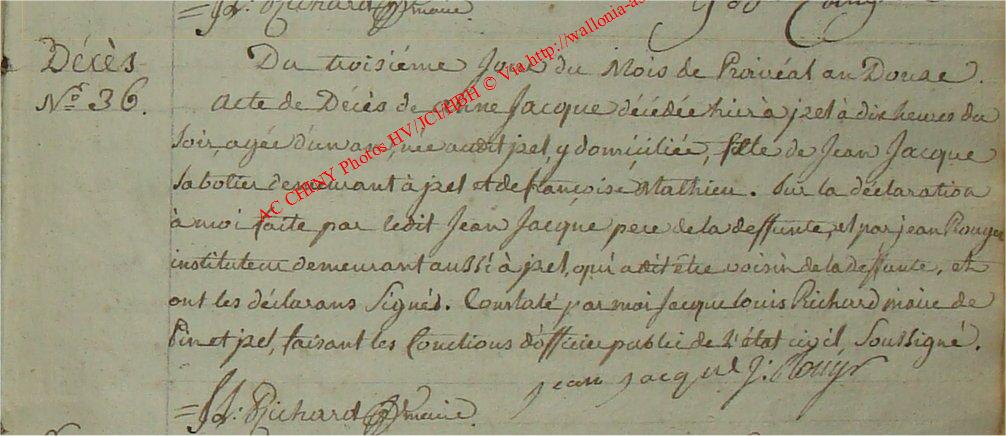 J. L. Richard maire
Décès
N.º 36.
Du troisiéme Jour du Mois de Prairéal an Douze.
acte de Décès de Jacque décédée hier à jzel à dix heures du
soir, agée d'un an, née audit jzel, y domiciliée, fille de Jean Jacque
sabotier demeurant à jzel et de françoise Mathieu. Sur la déclaration
à moi faite par ledit Jean Jacque pere de la deffunte, et par jean Rouyer
instituteur demeurant aussi à jzel, qui a dit être voisin de la deffunte, et
ont les déclarans Signés. Constaté par moi Jacque Louis Richard maire de
Pin et jzel, faisant les fonctions d'officier public de l'état civil Soussigné.
jean jacque J: Rouyr
J. L. Richard maire
AC CHINY Photos HV/JCI/HBH © Via http://wallonia-as